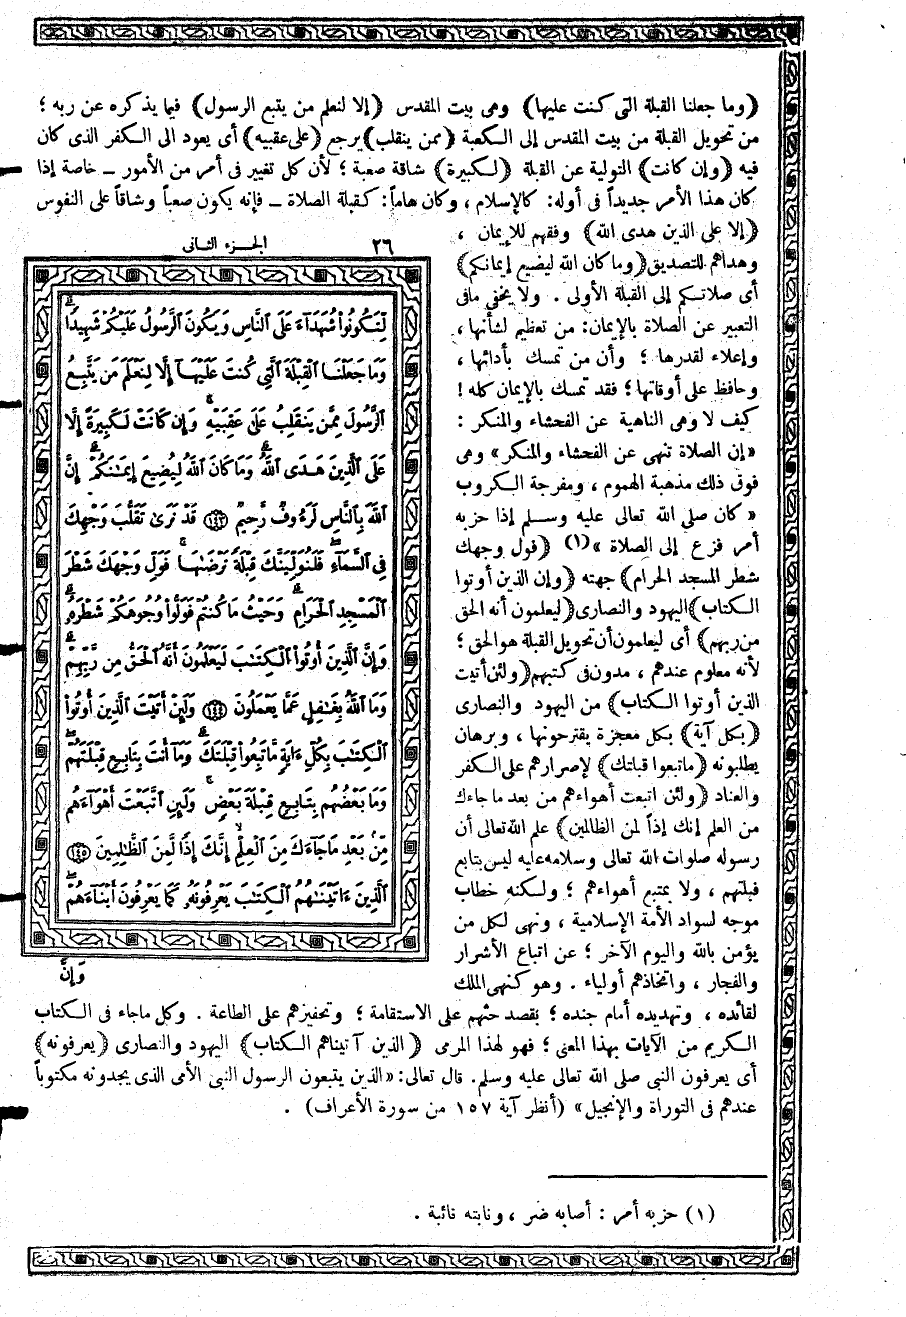 (وما جعلنا القبلة التى كنت عليها) وهى بيت المقدس (إلا لنعلم من يتبع الرسول) فيما يذكره عن ربه ؛
من تحويل القبلة من بيت المقدس إلى الكعبة (ممن ينقلب) يرجع (على عقبيه) أى يعود الى الكفر الذى كان
فيه (وإن كانت) التولية عن القبلة (لكبيرة) شاقة صعبة ؛ لأن كل تغيير فى أمر من الأمور ــ خاصة إذا
كان هذا الأمر جديداً فى أوله: كالإسلام ، وكان هاماً: كقبلة الصلاة ــ فإنه يكون صعباً وشاقاً على النفوس
(إلا على الذين هدى الله) وفقهم للإيمان ،
وهداهم للتصديق (وما كان الله ليضيع إيمانكم)
أى صلاتكم إلى القبلة الأولى . ولا يخفى مافى
التعبير عن الصلاة بالإيمان: من تعظيم لشأنها ،
وإعلاء لقدرها ؛ وأن من تمسك بأدائها ،
وحافظ على أوقاتها ؛ فقد تمسك بالإيمان كله !
كيف لا وهى الناهية عن الفحشاء والمنكر :
«إن الصلاة تنهى عن الفحشاء والمنكر» وهى
فوق ذلك مذهبة الهموم ، ومفرجة الكروب
« كان صلى الله تعالى عليه وسلم إذا حزبه
أمر فزع إلى الصلاة »(١) (فول وجهك
شطر المسجد الحرام) جهته (وإن الذين أوتوا
الكتاب) اليهود والنصارى (ليعلمون أنه الحق
من ربهم) أى ليعلمون أن تحويل القبلة هو الحق ؛
لأنه معلوم عندهم ، مدون فى كتبهم (ولئن أتيت
الذين أوتوا الكتاب) من اليهود والنصارى
(بكل آية) بكل معجزة يقترحونها ، وبرهان
يطلبونه (ماتبعوا قبلتك) لإصرارهم على الكفر
والعناد (ولئن اتبعت أهواءهم من بعد ما جاءك
من العلم إنك إذاً لمن الظالمين) علم الله تعالى أن
رسوله صلوات الله تعالى وسلامه عليه ليس بتابع
قبلتهم ، ولا بمتبع أهواءهم ؛ ولكنه خطاب
موجه لسواد الأمة الإسلامية ، ونهى لكل من
يؤمن بالله واليوم الآخر ؛ عن اتباع الأشرار
والفجار ، واتخاذهم أولياء . وهو كنهى الملك
لقائده ، وتهديده أمام جنده ؛ بقصد حثهم على الاستقامة ؛ وتحفيزهم على الطاعة . وكل ماجاء فى الكتاب
الكريم من الآيات بهذا المعنى ؛ فهو لهذا المرمى (الذين آتيناهم الكتاب) اليهود والنصارى (يعرفونه)
أى يعرفون النبى صلى الله تعالى عليه وسلم. قال تعالى: «الذين يتبعون الرسول النبى الأمى الذى يجدونه مكتوباً
عندهم فى التوراة والإنجيل» (أنظر آية ١٥٧ من سورة الأعراف) .
٢٦ الجزء الثانى
لِّتَكُونُوا۟ شُهَدَآءَ عَلَى ٱلنَّاسِ وَيَكُونَ ٱلرَّسُولُ عَلَيْكُمْ شَهِيدًاۗ
وَمَا جَعَلْنَا ٱلْقِبْلَةَ ٱلَّتِى كُنتَ عَلَيْهَآ إِلَّا لِنَعْلَمَ مَن يَتَّبِعُ
ٱلرَّسُولَ مِمَّن يَنقَلِبُ عَلَىٰ عَقِبَيْهِۚ وَإِن كَانَتْ لَكَبِيرَةً إِلَّا
عَلَى ٱلَّذِينَ هَدَى ٱللَّهُۗ وَمَا كَانَ ٱللَّهُ لِيُضِيعَ إِيمَٰنَكُمْۚ إِنَّ
ٱللَّهَ بِٱلنَّاسِ لَرَءُوفٌ رَّحِيمٌ ﴿١٤٣﴾ قَدْ نَرَىٰ تَقَلُّبَ وَجْهِكَ
فِى ٱلسَّمَآءِۖ فَلَنُوَلِّيَنَّكَ قِبْلَةً تَرْضَىٰهَاۚ فَوَلِّ وَجْهَكَ شَطْرَ
ٱلْمَسْجِدِ ٱلْحَرَامِۚ وَحَيْثُ مَا كُنتُمْ فَوَلُّوا۟ وُجُوهَكُمْ شَطْرَهُۥۗ
وَإِنَّ ٱلَّذِينَ أُوتُوا۟ ٱلْكِتَٰبَ لَيَعْلَمُونَ أَنَّهُ ٱلْحَقُّ مِن رَّبِّهِمْۗ
وَمَا ٱللَّهُ بِغَٰفِلٍ عَمَّا يَعْمَلُونَ ﴿١٤٤﴾ وَلَئِنْ أَتَيْتَ ٱلَّذِينَ أُوتُوا۟
ٱلْكِتَٰبَ بِكُلِّ ءَايَةٍ مَّا تَبِعُوا۟ قِبْلَتَكَۚ وَمَآ أَنتَ بِتَابِعٍ قِبْلَتَهُمْۚ
وَمَا بَعْضُهُم بِتَابِعٍ قِبْلَةَ بَعْضٍۚ وَلَئِنِ ٱتَّبَعْتَ أَهْوَآءَهُم
مِّنۢ بَعْدِ مَا جَآءَكَ مِنَ ٱلْعِلْمِۙ إِنَّكَ إِذًا لَّمِنَ ٱلظَّٰلِمِينَ ﴿١٤٥﴾
ٱلَّذِينَ ءَاتَيْنَٰهُمُ ٱلْكِتَٰبَ يَعْرِفُونَهُۥ كَمَا يَعْرِفُونَ أَبْنَآءَهُمْۖ
وَإِنَّ
(١) حزبه أمر : أصابه ضر ، ونابته نائبة .